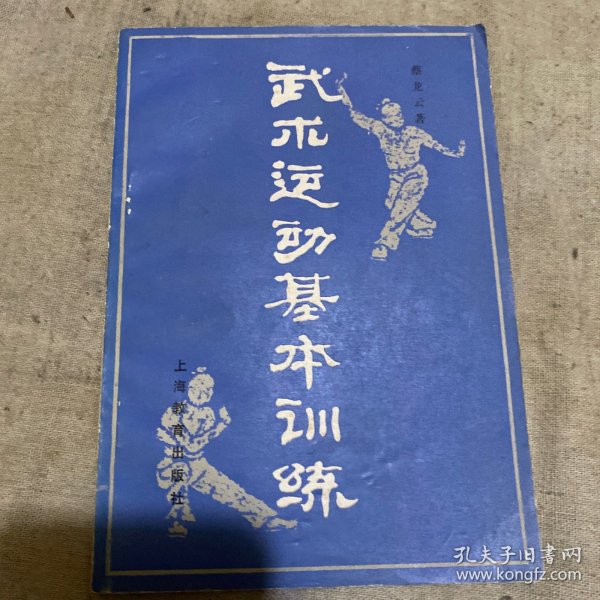 蔡龙云著
武术运动基本训练
上海教育出版社
孔夫子旧书网
www.kongfz.com